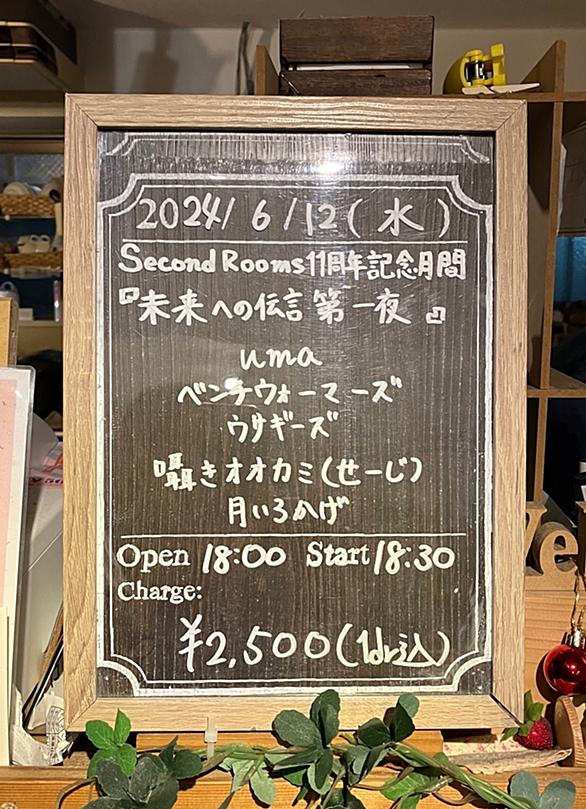 2024/6/12(水)
Second Rooms11周年記念月間
『未来への伝言 第一夜』
uma
ベンチウォーマーズ
ウサギーズ
囁きオオカミ(せーじ)
月いろかげ
Open 18:00 Start 18:30
Charge:
¥2,500(1dr込)